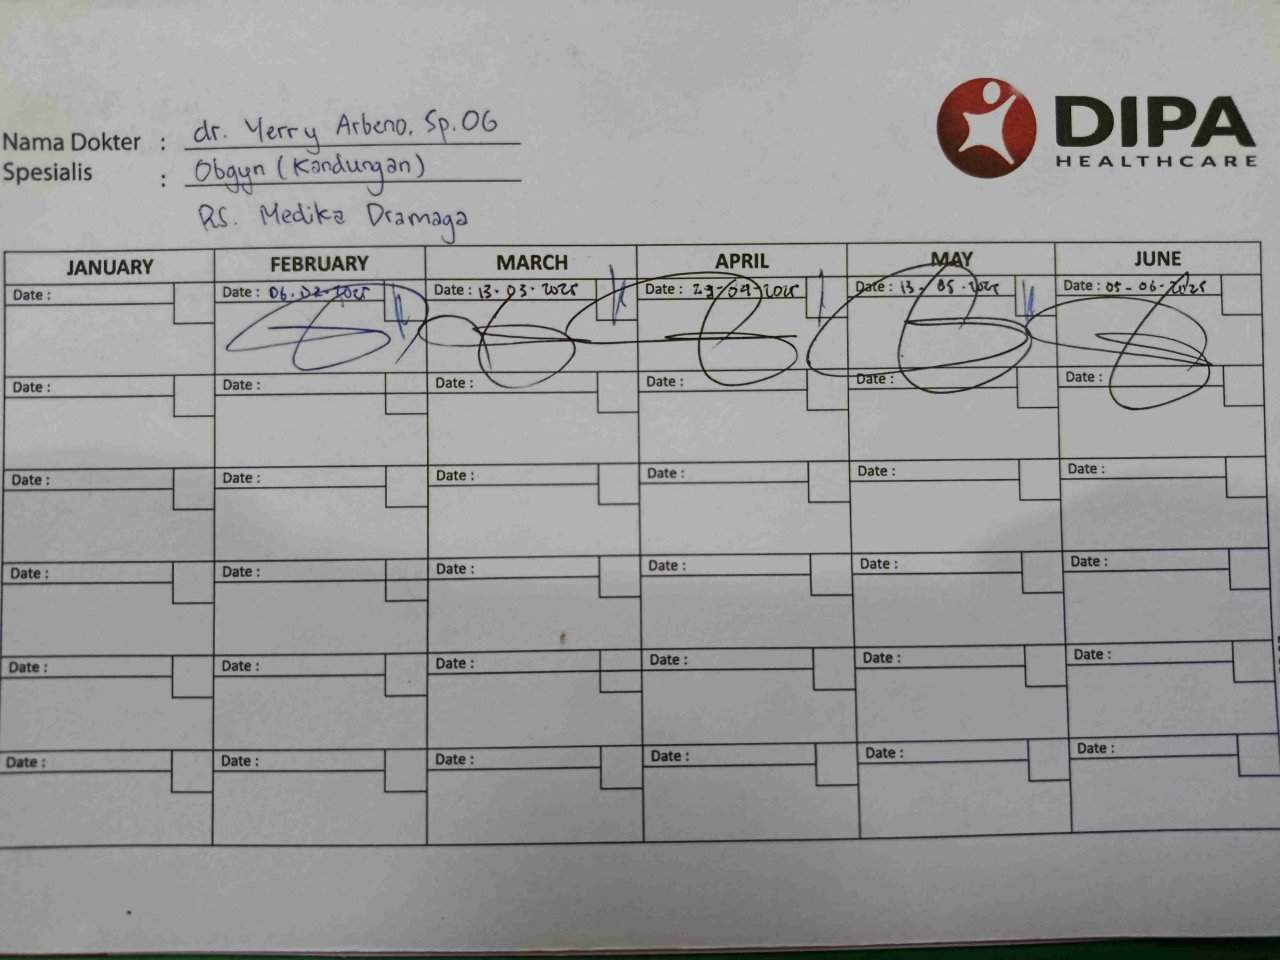 DIPA
HEALTHCARE
Nama Dokter : dr. Yerry Arbeno, Sp.OG
Spesialis : Obgyn (Kandungan)
RS. Medika Dramaga
JANUARY FEBRUARY MARCH APRIL MAY JUNE
Date : Date : 06.02.2025 Date : 13.03.2025 Date : 29-04-2025 Date : 13-05-2025 Date : 05-06-2025
Date : Date : Date : Date : Date : Date :
Date : Date : Date : Date : Date : Date :
Date : Date : Date : Date : Date : Date :
Date : Date : Date : Date : Date : Date :
Date : Date : Date : Date : Date : Date :